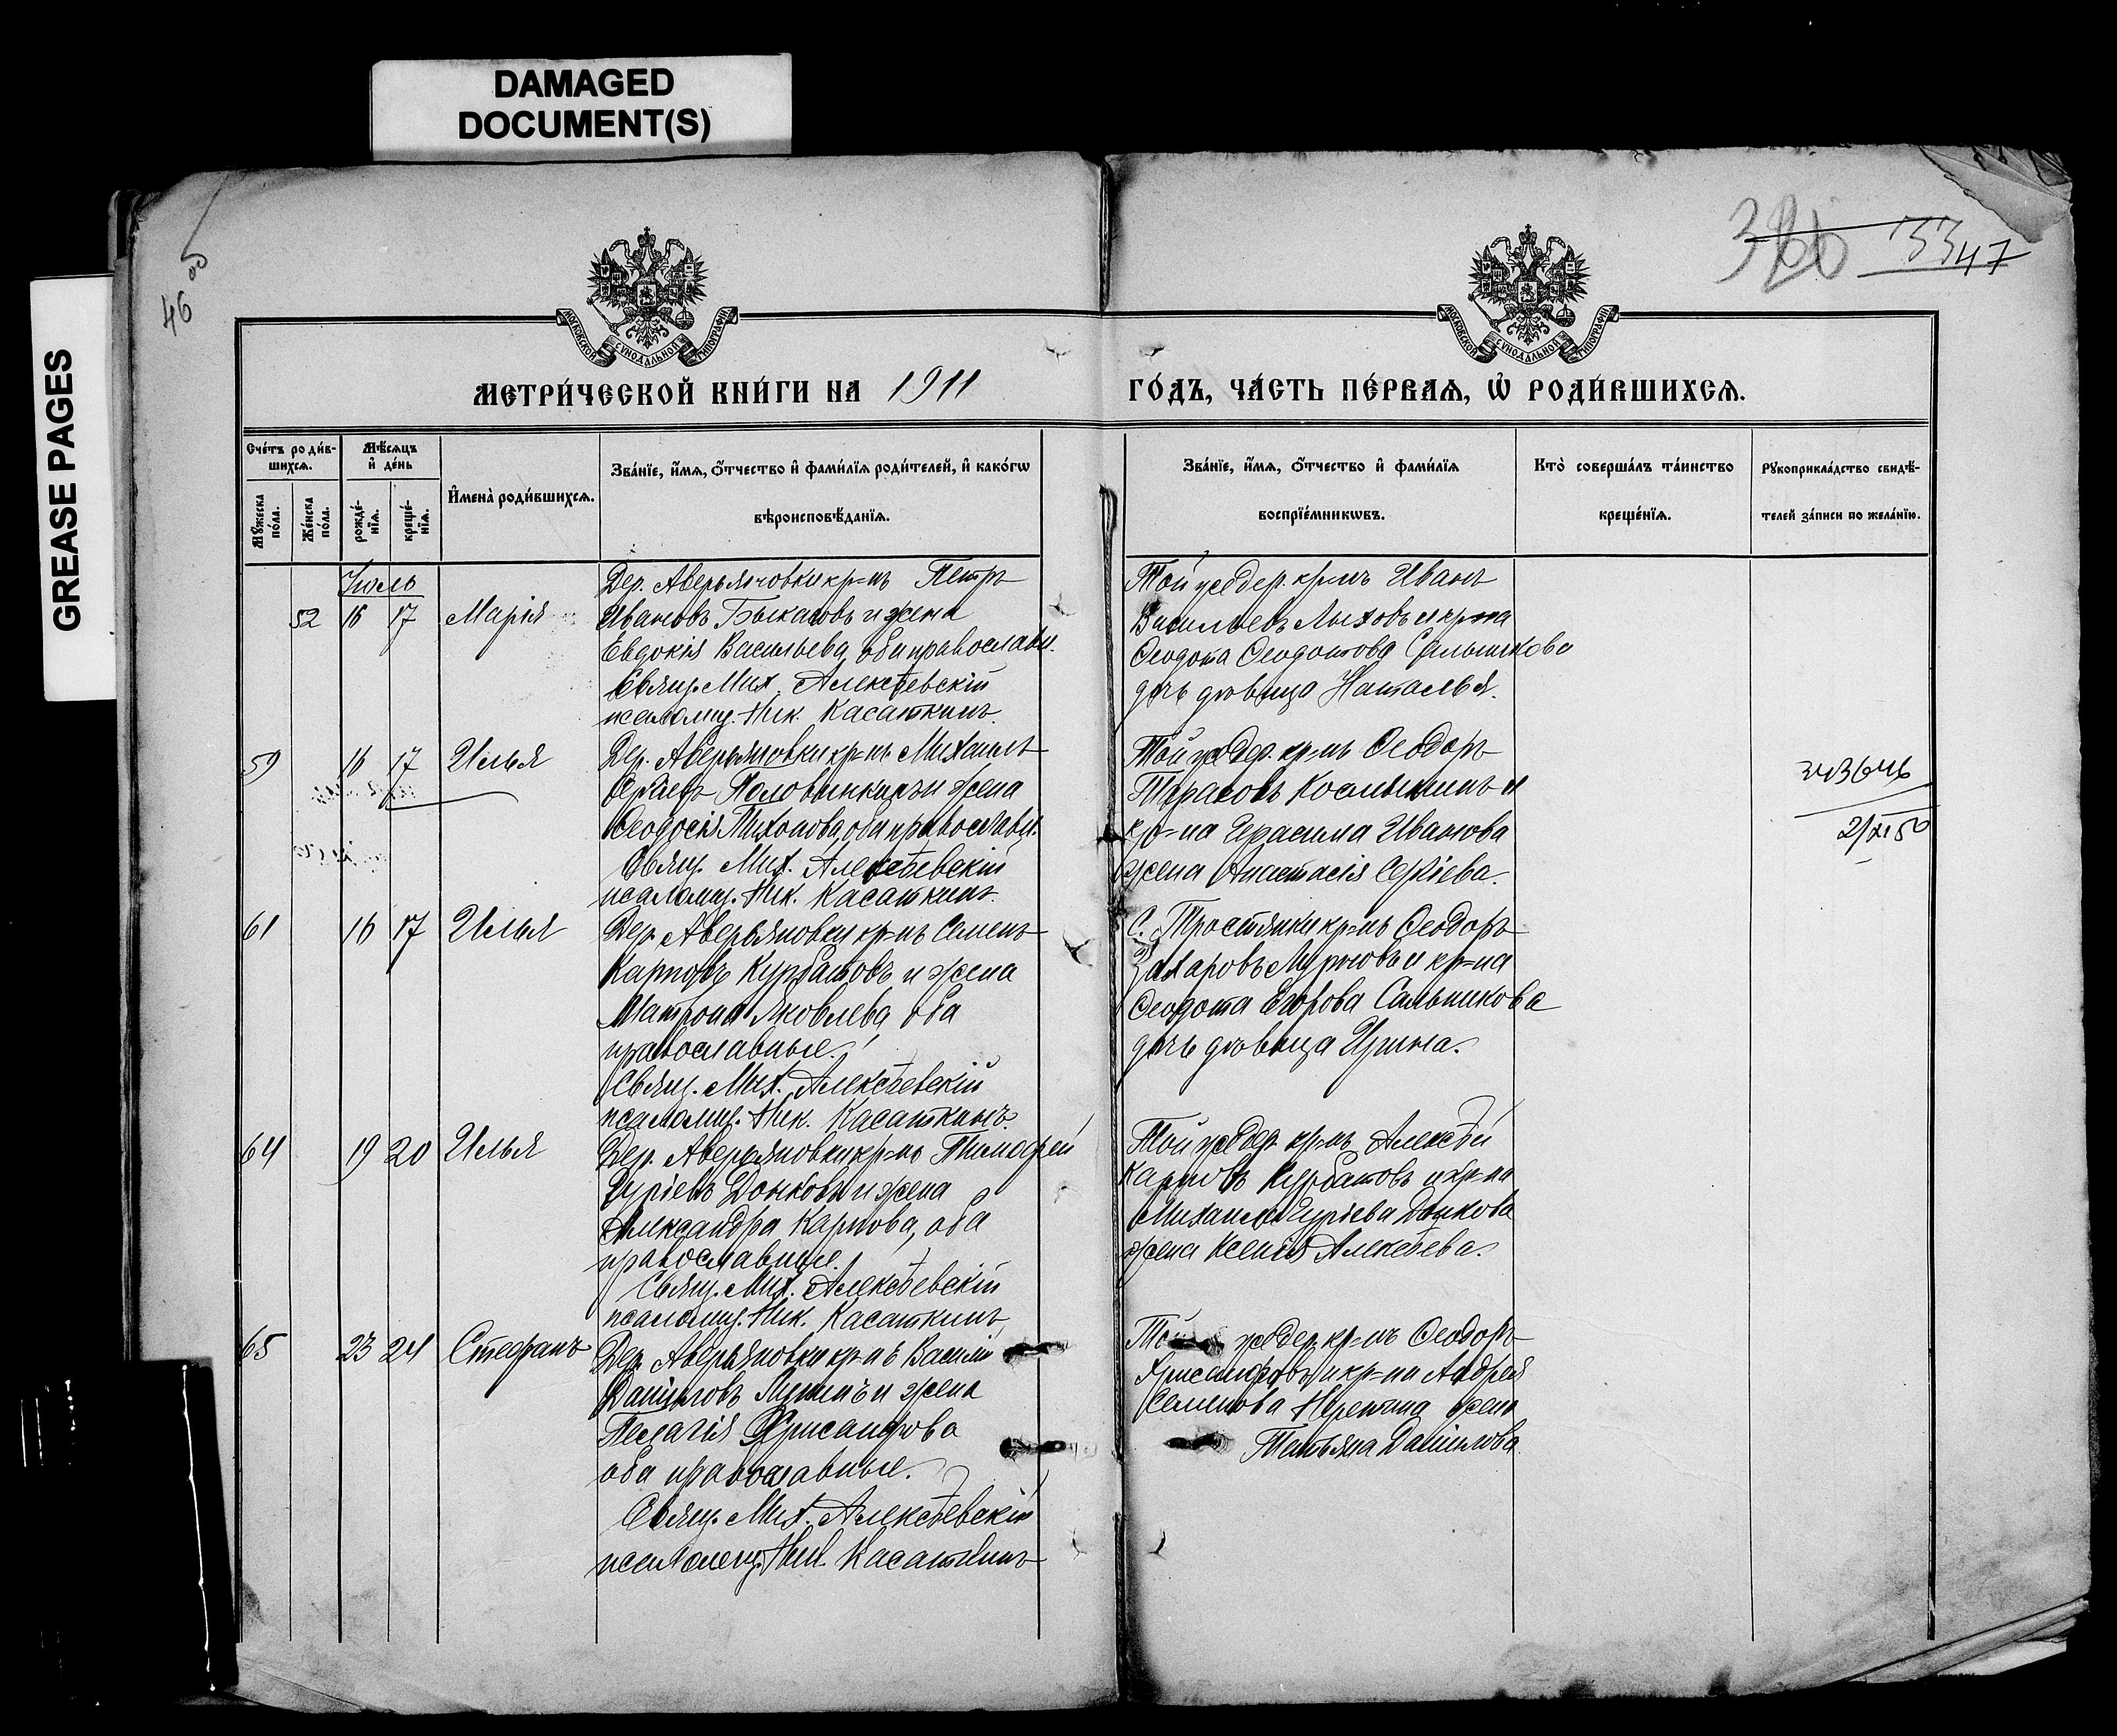 DAMAGED
DOCUMENT(S)
GREASE PAGES
46
33 47
МОСКОВСКОЙ СУНОДАЛЬНОЙ ТИПОГРАФІИ
МОСКОВСКОЙ СУНОДАЛЬНОЙ ТИПОГРАФІИ
МЕТРИ́ЧЕСКОЙ КНИ́ГИ НА 1911
ГО́ДЪ, ЧА́СТЬ ПЕ́РВАѦ, Ѡ҆ РОДИ́ВШИХСѦ.
Сче́тъ роди́в-
шихсѧ.
Мꙋжеска по́ла.
Же́нска по́ла.
Мѣ́сѧцъ
и҆ де́нь
рожде́-
нїѧ.
креще́-
нїѧ.
И҆мена̀ роди́вшихсѧ.
Зва́нїе, и҆́мѧ, ѻ҆́тчество и҆ фами́лїѧ роди́телей, и҆ како́гѡ
вѣроисповѣ́данїѧ.
Зва́нїе, и҆́мѧ, ѻ҆́тчество и҆ фами́лїѧ
воспрїе́мникѡвъ.
Кто̀ соверша́лъ та́инство
креще́нїѧ.
Рꙋкоприкла́дство свидѣ́-
телей за́писи по жела́нїю.
Іюль
52 16 17 Марія
Дер. Аверьяновки кр-нъ Петръ
Ивановъ Быкановъ и жена
Евдокія Васильева, оба православн.
Свящ. Мих. Алексѣевскій
псаломщ. Ник. Касаткинъ.
Той же дер. кр-нъ Иванъ
Васильевъ Лыховъ и кр-на
Ѳеодота Ѳеодотова Сальникова
дочь дѣвица Наталья.
59 16 17 Илья
Дер. Аверьяновки кр-нъ Михаилъ
Половинкинъ и жена
Ѳеодосія Тихонова, оба православн.
Свящ. Мих. Алексѣевскій
псаломщ. Ник. Касаткинъ.
Той же дер. кр-нъ Ѳеодоръ
Тарасовъ Косыгинъ и
кр-на Герасима Иванова
жена Анастасія Сергіева.
61 16 17 Илья
Дер. Аверьяновки кр-нъ Семенъ
Карповъ Курбатовъ и жена
Матрона Яковлева, оба
православные.
Свящ. Мих. Алексѣевскій
псаломщ. Ник. Касаткинъ.
С. Тростянки кр-нъ Ѳеодоръ
Захаровъ и кр-на
Ѳеодота Егорова Сальникова
дочь дѣвица Ирина.
64 19 20 Илья
Дер. Аверьяновки кр-нъ Тимофей
Гуріевъ Донковъ и жена
Александра Карпова, оба
православные.
Свящ. Мих. Алексѣевскій
псаломщ. Ник. Касаткинъ
Той же дер. кр-нъ Алексѣй
Карповъ Курбатовъ и кр-на
Михаила Гуріева Донкова
жена Ксенія Алексѣева.
65 23 24 Стефанъ
Дер. Аверьяновки кр-нъ Василій
Даниловъ и жена
Пелагія Хрисанфова
оба православные.
Свящ. Мих. Алексѣевскій
псаломщ. Ник. Касаткинъ
Той же дер. кр-нъ Ѳеодоръ
Хрисанфовъ и кр-на Андрея
Семенова жена
Татьяна Данилова